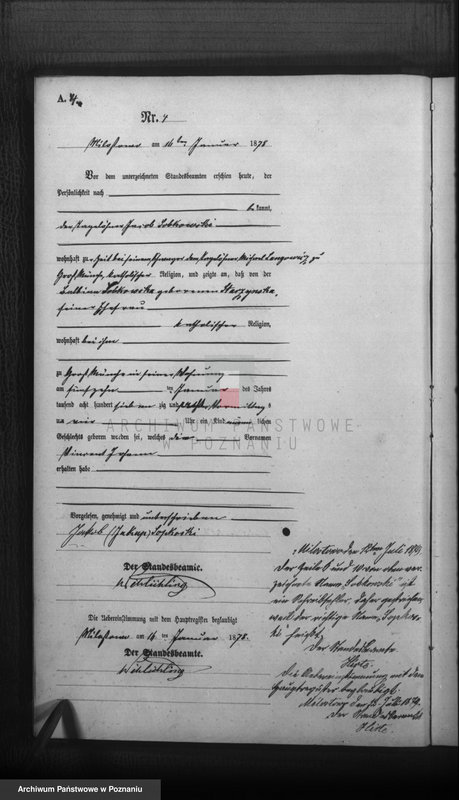 A. 4.
Nr. 4
Milostowo am 16 ten Januar 1878
Vor dem unterzeichneten Standesbeamten erschien heute, der
Persönlichkeit nach
be kannt,
der Tagelöhner Jacob Sobkowski
wohnhaft zu, Zeit bei seinem Schwager dem Tagelöhner Michael zu
Groß Münche, katholischer Religion, und zeigte an, daß von der
Balbina Sobkowska geborenen Starzynska,
seiner Ehefrau
katholischer Religion,
wohnhaft bei ihm
zu Groß Münche in seiner Wohnung
am fünfzehn ten Januar des Jahres
tausend acht hundert sieben zig und acht Vormittags
um vier Uhr ein Kind männ lichen
Geschlechts geboren worden sei, welches den Vornamen
Vincent Johann
erhalten habe
Vorgelesen, genehmigt und unterschrieben
Jakób (Jakup) Sopkoski
Der Standesbeamte.
Die Uebereinstimmung mit dem Hauptregister beglaubigt
Milostowo am 16 ten Januar 1878.
Der Standesbeamte.
Milostowo den Juli 1879.
Der Zeile 6 und 10 von oben ver-
zeichnete Name „Sobkowski" ist
ein Schreibfehler, daher gestrichen
weil der richtige Name „Sopkows-
ki" heißt.
Der Standesbeamte
Die Uebereinstimmung mit dem
Hauptregister beglaubigt.
Milostowo den Juli 1879.
Der Standesbeamte
ARCHIWUM PAŃSTWOWE
W POZNANIU
Archiwum Państwowe w Poznaniu
Archiwum Państwowe w Poznaniu